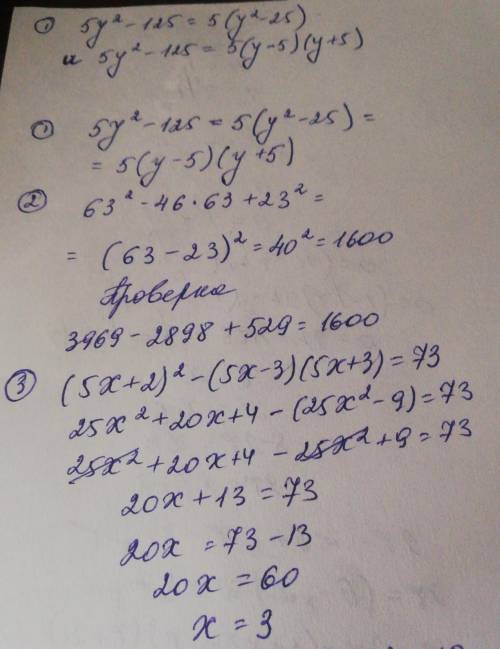 ① 5y² - 125 = 5(y² - 25)
и 5y² - 125 = 5(y - 5)(y + 5)
① 5y² - 125 = 5(y² - 25) =
= 5(y - 5)(y + 5)
② 63² - 46 · 63 + 23² =
= (63 - 23)² = 40² = 1600
Проверка
3969 - 2898 + 529 = 1600
③ (5x + 2)² - (5x - 3)(5x + 3) = 73
25x² + 20x + 4 - (25x² - 9) = 73
25x² + 20x + 4 - 25x² + 9 = 73
20x + 13 = 73
20x = 73 - 13
20x = 60
x = 3